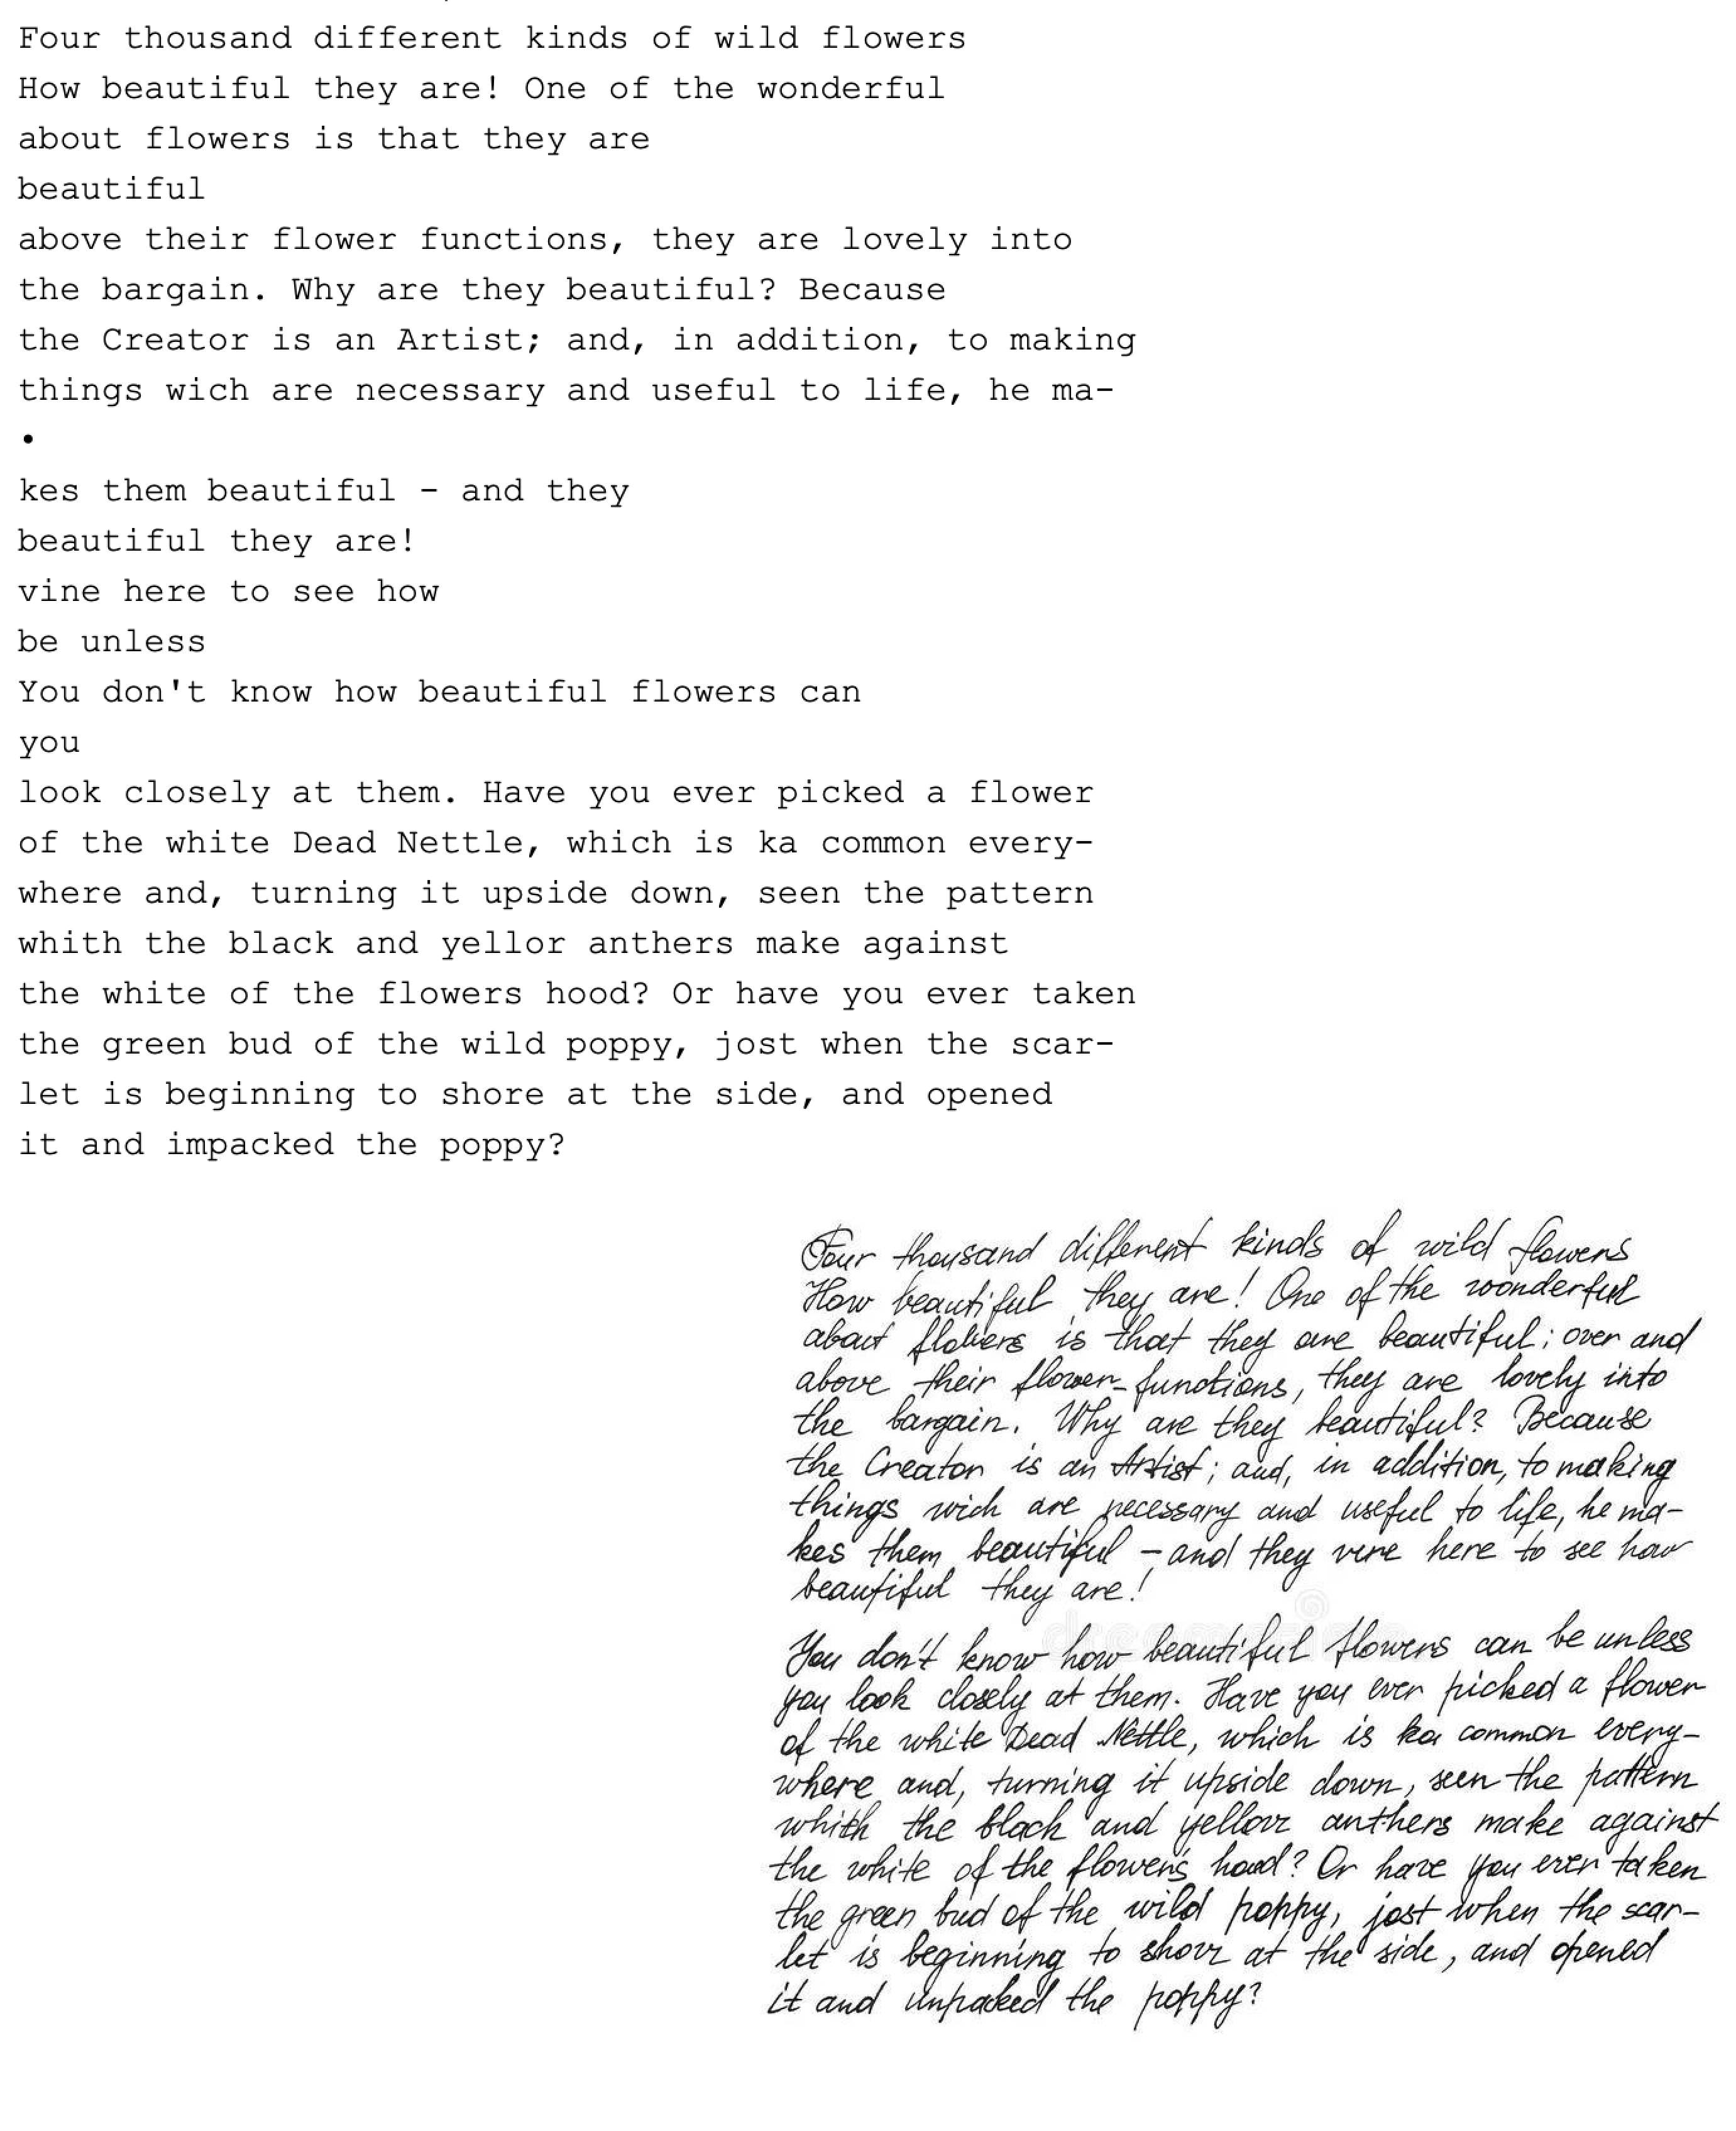 Four thousand different kinds of wild flowers
How beautiful they are! One of the wonderful
about flowers is that they are
beautiful
above their flower functions, they are lovely into
the bargain. Why are they beautiful? Because
the Creator is an Artist; and, in addition, to making
things wich are necessary and useful to life, he ma-
•
kes them beautiful - and they
beautiful they are!
vine here to see how
be unless
You don't know how beautiful flowers can
you
look closely at them. Have you ever picked a flower
of the white Dead Nettle, which is ka common every-
where and, turning it upside down, seen the pattern
whith the black and yellor anthers make against
the white of the flowers hood? Or have you ever taken
the green bud of the wild poppy, jost when the scar-
let is beginning to shore at the side, and opened
it and impacked the poppy?
Four thousand different kinds of wild flowers
How beautiful they are! One of the wonderful
about flowers is that they are beautiful; over and
above their flower-functions, they are lovely into
the bargain. Why are they beautiful? Because
the Creator is an Artist; and, in addition, to making
things wich are necessary and useful to life, he ma-
kes them beautiful - and they vere here to see how
beautiful they are!
You don't know how beautiful flowers can be unless
you look closely at them. Have you ever picked a flower
of the white Dead Nettle, which is ka common every-
where and, turning it upside down, seen the pattern
whith the black and yellow anthers make against
the white of the flower's hood? Or have you ever taken
the green bud of the wild poppy, jost when the scar-
let is beginning to show at the side, and opened
it and unpacked the poppy?